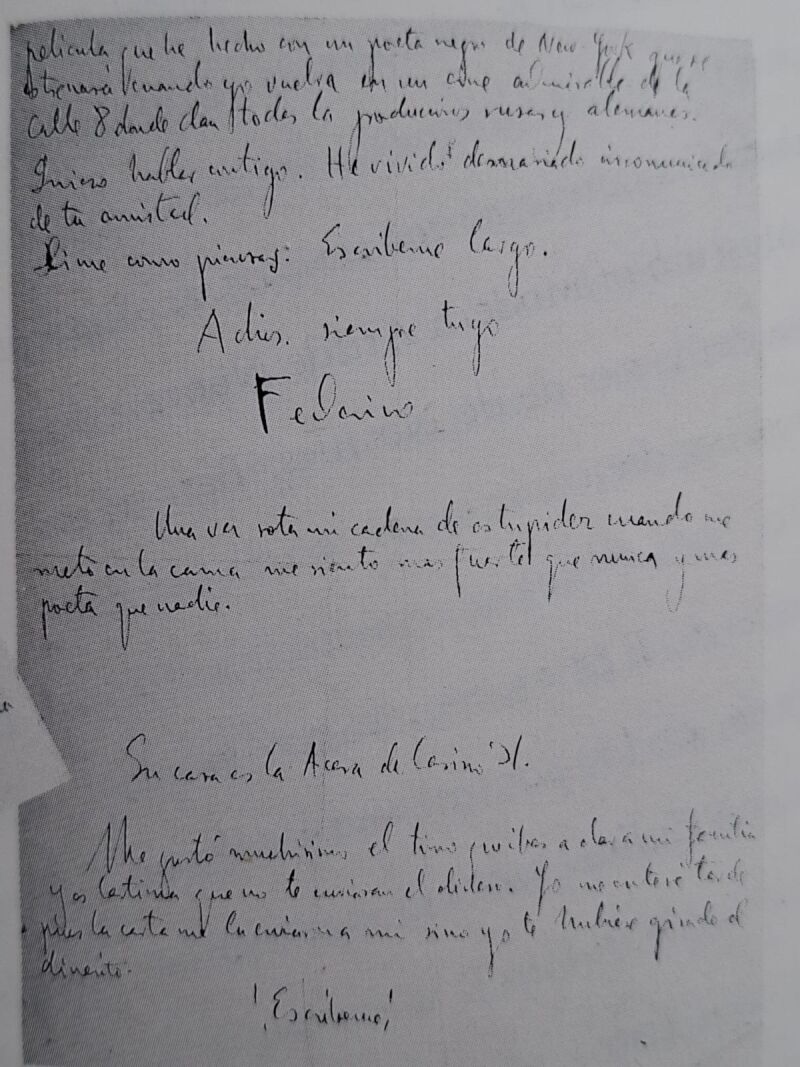 película que he hecho con un poeta negro de New York que se
estrenará cuando yo vuelva en un cine admirable de la
Calle 8 donde dan todas la producciones rusas y alemanas.
Quiero hablar contigo. He vivido demasiado incomunicado
de tu amistad.
Dime como piensas: Escríbeme largo.
Adios. siempre tuyo
Federico
Una vez rota mi cadena de estupidez cuando me
meto en la cama me siento mas fuerte que nunca y mas
poeta que nadie.
Su casa es la Acera de Casino 31.
Me gustó muchísimo el timo que ibas a dar a mi familia
y es lástima que no te enviaran el dinero. Yo me enteré tarde
pues la carta me la enviaron a mi sino yo te hubiese girado el
dinerito.
¡Escríbeme!